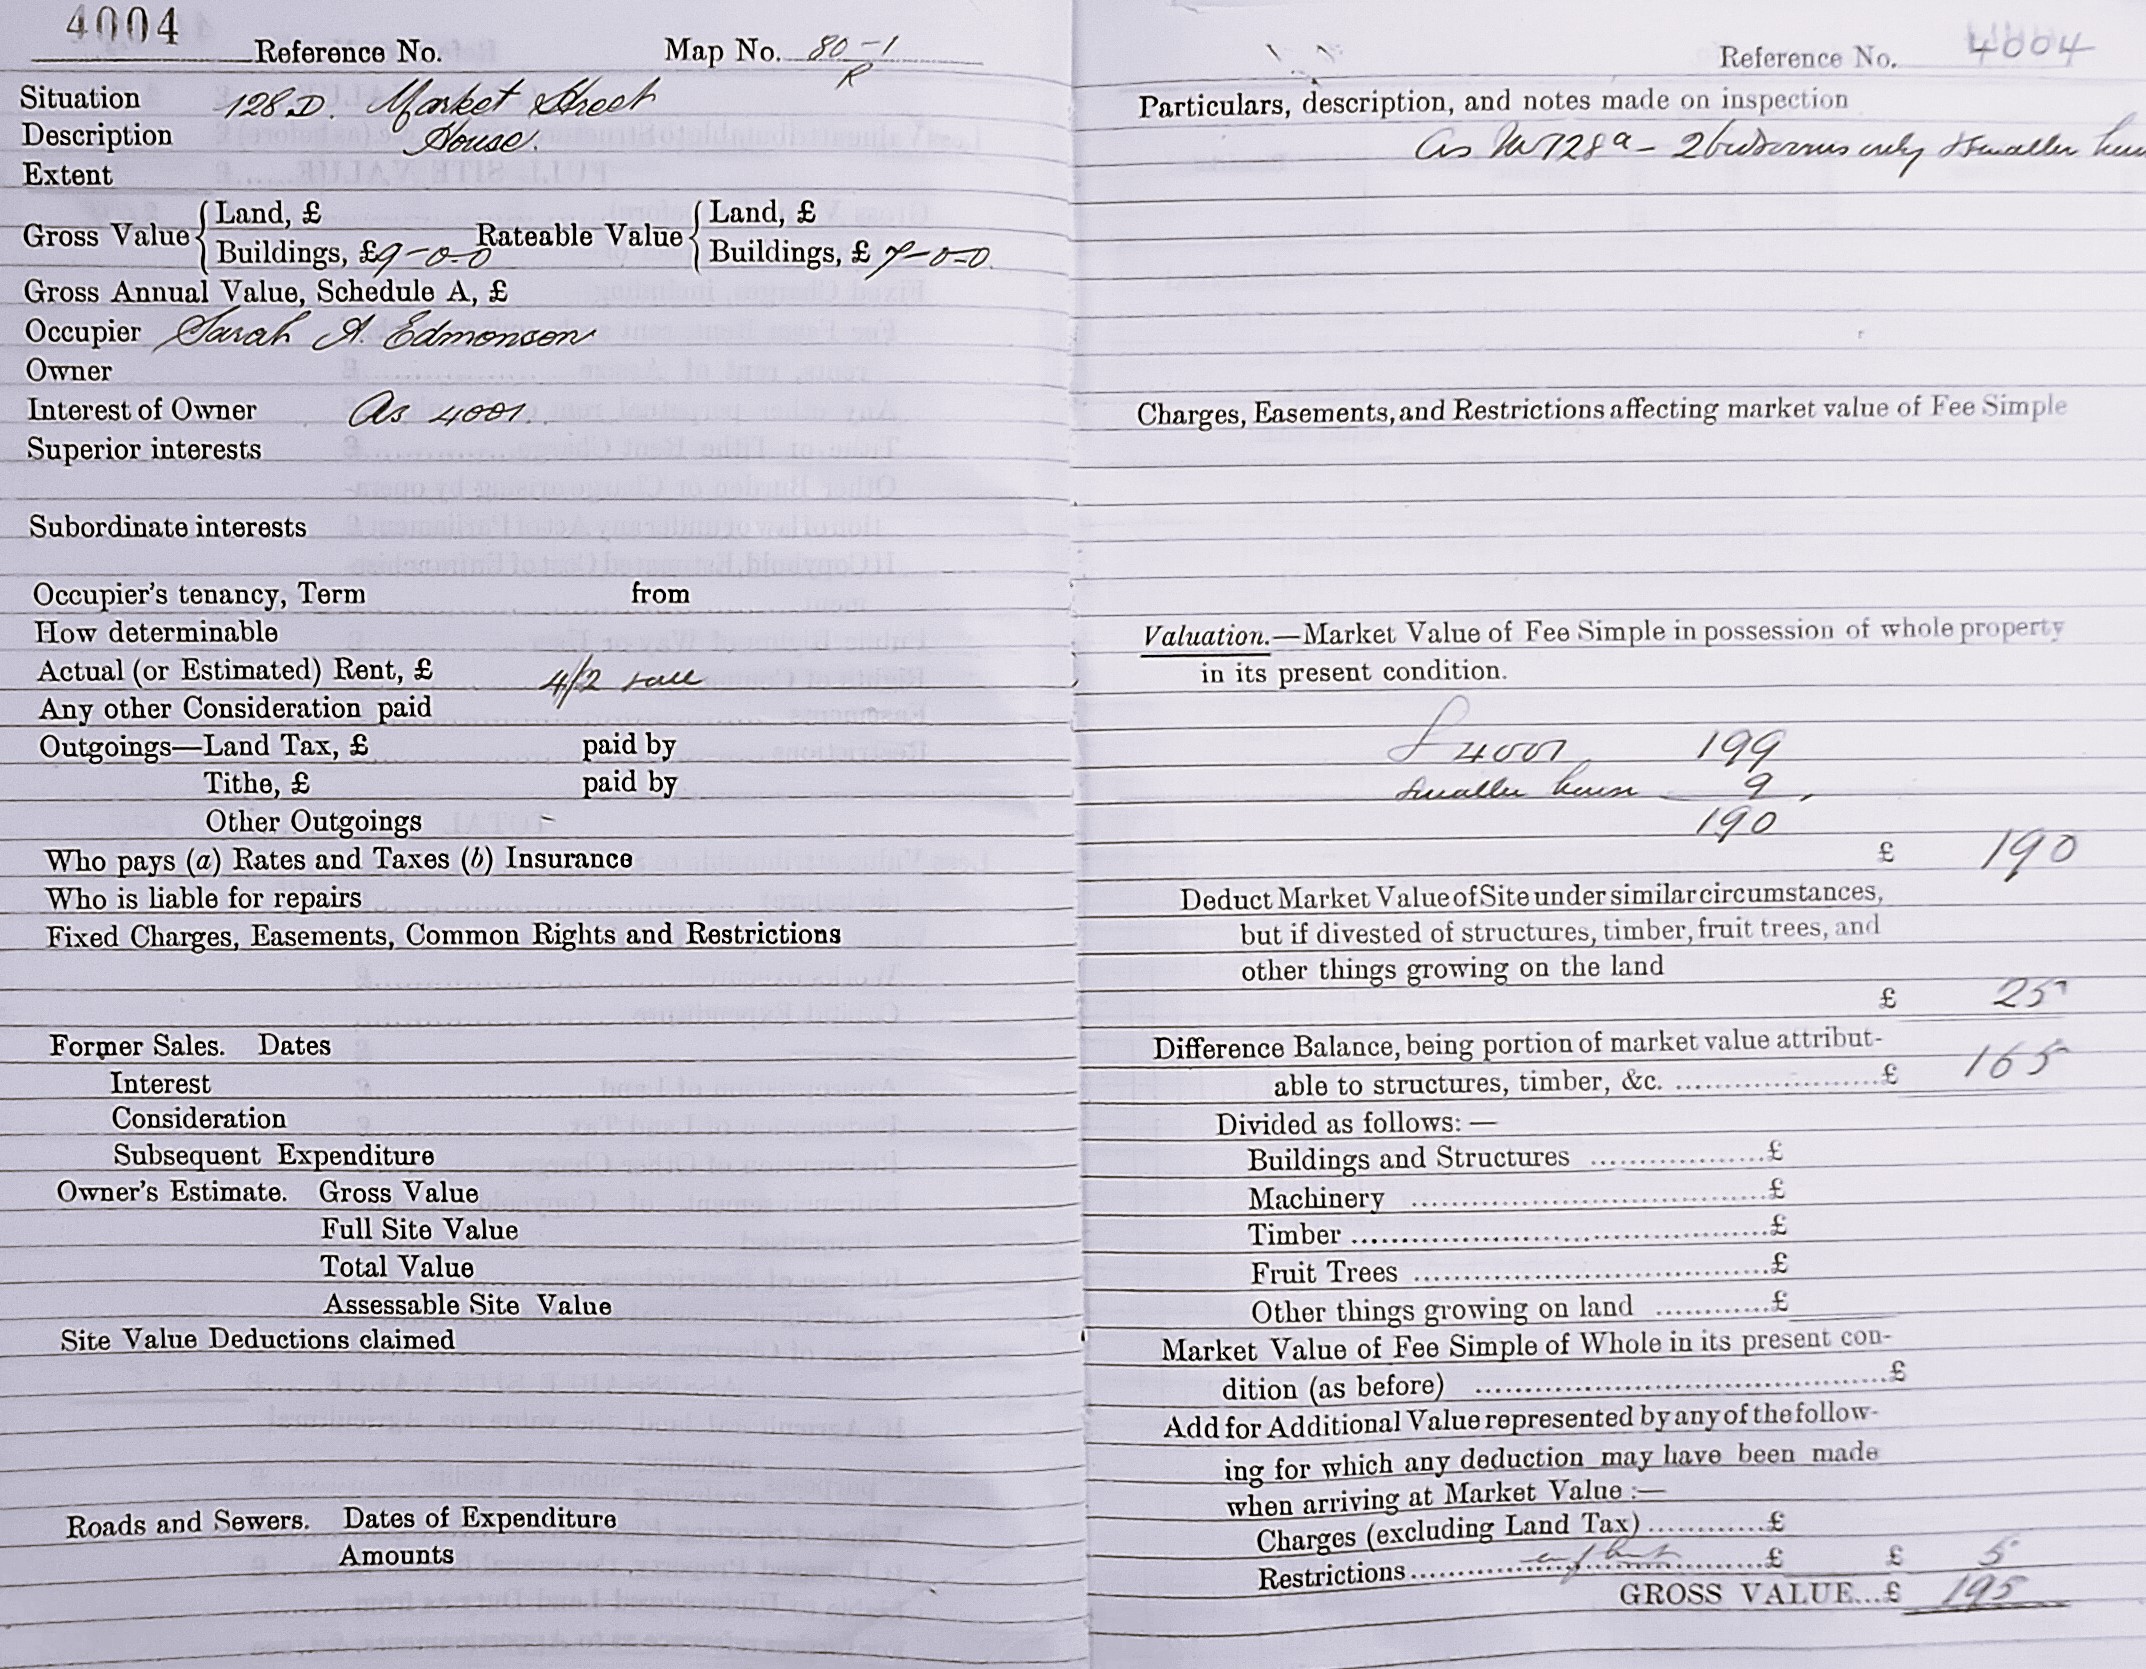 4004
Reference No. Map No. 80-1
R
Situation 128D. Market Street
Description House.
Extent
Gross Value { Land, £ Rateable Value { Land, £
Buildings, £9-0-0 Buildings, £ 7-0-0.
Gross Annual Value, Schedule A, £
Occupier Sarah A. Edmonson
Owner
Interest of Owner As 4001.
Superior interests
Subordinate interests
Occupier's tenancy, Term from
How determinable
Actual (or Estimated) Rent, £ 4/2
Any other Consideration paid
Outgoings—Land Tax, £ paid by
Tithe, £ paid by
Other Outgoings -
Who pays (a) Rates and Taxes (b) Insurance
Who is liable for repairs
Fixed Charges, Easements, Common Rights and Restrictions
Former Sales. Dates
Interest
Consideration
Subsequent Expenditure
Owner's Estimate. Gross Value
Full Site Value
Total Value
Assessable Site Value
Site Value Deductions claimed
Roads and Sewers. Dates of Expenditure
Amounts
Reference No. 4004
Particulars, description, and notes made on inspection
As No 128a - 2 bedrooms only & smaller
Charges, Easements, and Restrictions affecting market value of Fee Simple
Valuation.—Market Value of Fee Simple in possession of whole property
in its present condition.
4001 199
smaller house 9
190
£ 190
Deduct Market Value of Site under similar circumstances,
but if divested of structures, timber, fruit trees, and
other things growing on the land
£ 25
Difference Balance, being portion of market value attribut-
able to structures, timber, &c. ....................£ 165
Divided as follows: —
Buildings and Structures ..................£
Machinery ....................................£
Timber ..........................................£
Fruit Trees ....................................£
Other things growing on land ............£
Market Value of Fee Simple of Whole in its present con-
dition (as before) ..........................................£
Add for Additional Value represented by any of the follow-
ing for which any deduction may have been made
when arriving at Market Value :—
Charges (excluding Land Tax) ............£
Restrictions ....................................£ £ 5
GROSS VALUE...£ 195